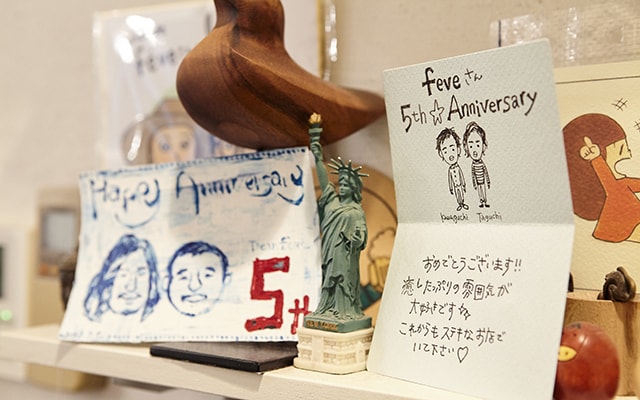 Happy Anniversary
Dear Feve
5th
feve さん
5th ☆ Anniversary
Kawaguchi Taguchi
おめでとうございます!!
癒したっぷりの雰囲気が
大好きです
これからもステキなお店で
いて下さい♡